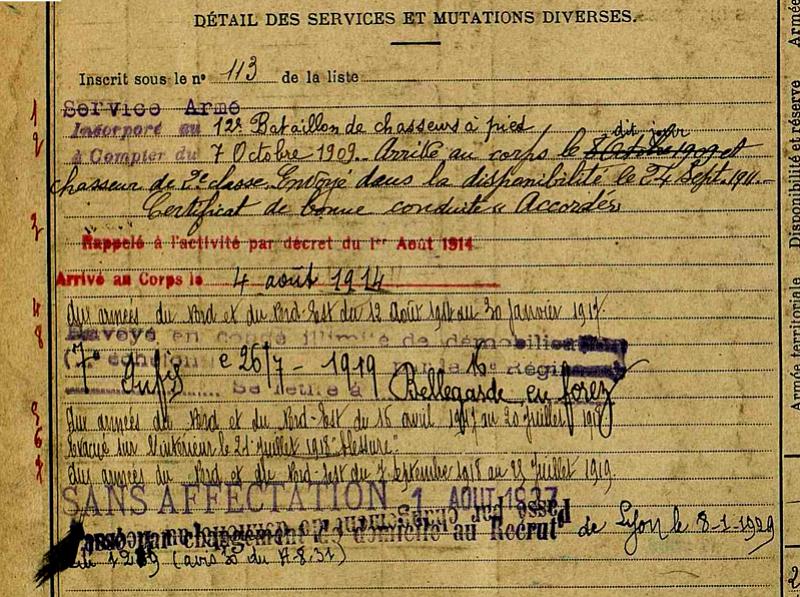 DÉTAIL DES SERVICES ET MUTATIONS DIVERSES.
Inscrit sous le n° 113 de la liste
1 Service Armé
2 Incorporé au 12e Bataillon de chasseurs à pied
dit jour
à Compter du 7 Octobre 1909. Arrivé au corps le 8 Octobre 1909 et
chasseur de 2e classe. Envoyé dans la disponibilité le 24 Sept. 1911.
Certificat de bonne conduite « Accordé »
3 Rappelé à l'activité par décret du 1er Août 1914
Arrivé au Corps le 4 août 1914
4 Aux armées du Nord et du Nord-Est du 12 Août 1914 au 30 janvier 1917.
8 Envoyé en congé illimité de démobilisation
7e échelon le 26/7 - 1919 par le 16 Régim
Inf Se retire à Bellegarde en forez
5 Aux armées du Nord et du Nord-Est du 15 avril 1917 au 20 Juillet 1918
6 Evacué sur l'intérieur le 21 Juillet 1918 "blessure"
7 Aux armées du Nord et du Nord-Est du 7 septembre 1918 au 23 Juillet 1919.
SANS AFFECTATION 1 AOUT 1937
Passé par changement de domicile au Recrutt de Lyon le 8-1-1929
(avis du